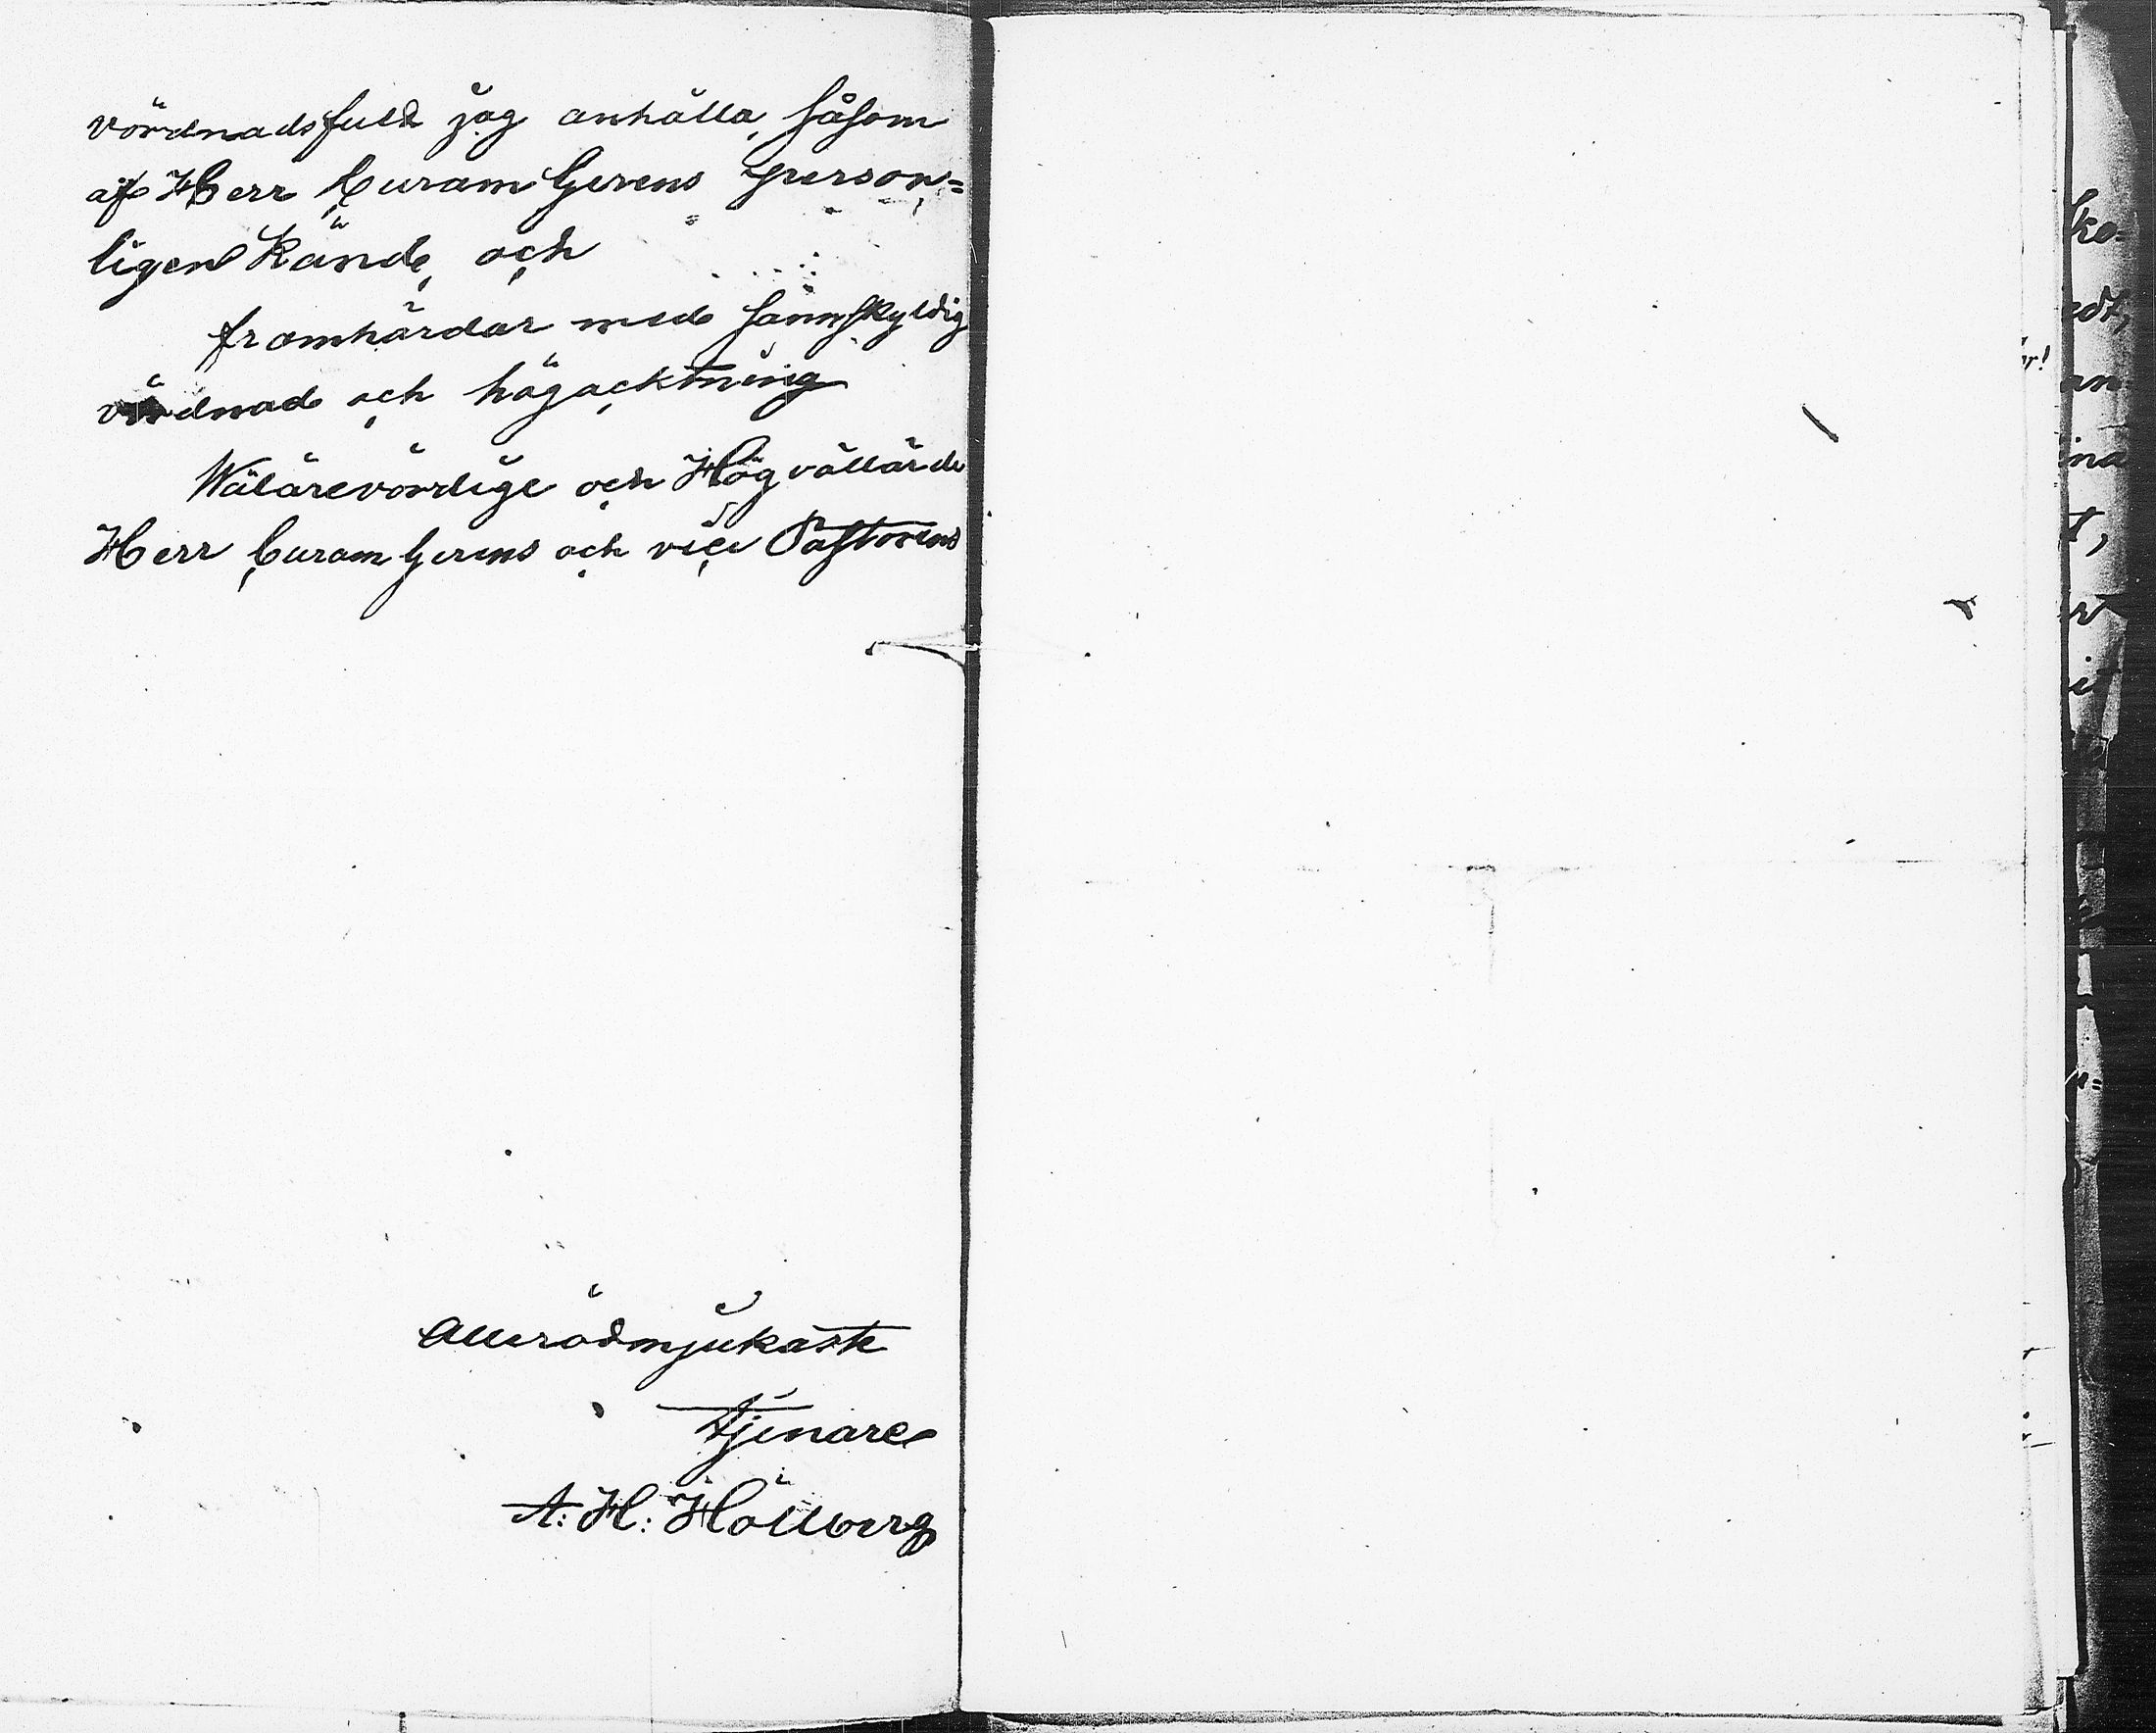 vördnadsfuld jag anhålla, såsom
af Herr Curam Gerens person=
ligen kände, och
framhärdar med sannskyldig
vördnad och högacktning
Wälärevördige och Högvällärde
Herr Curam Gerens och vice Pastorens
Allerödmjukaste
tjenare
A: H: Hållberg